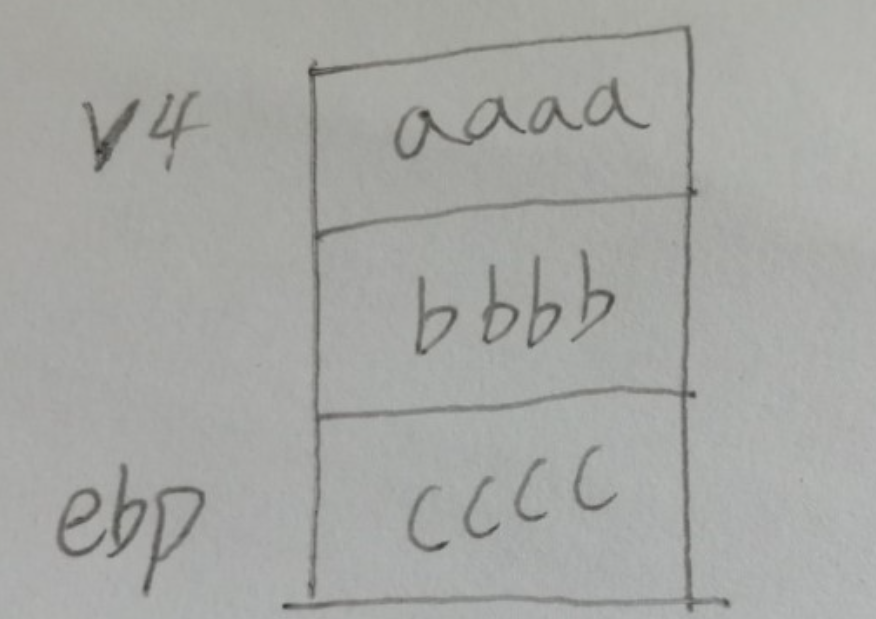 v4 aaaa
bbbb
ebp cccc